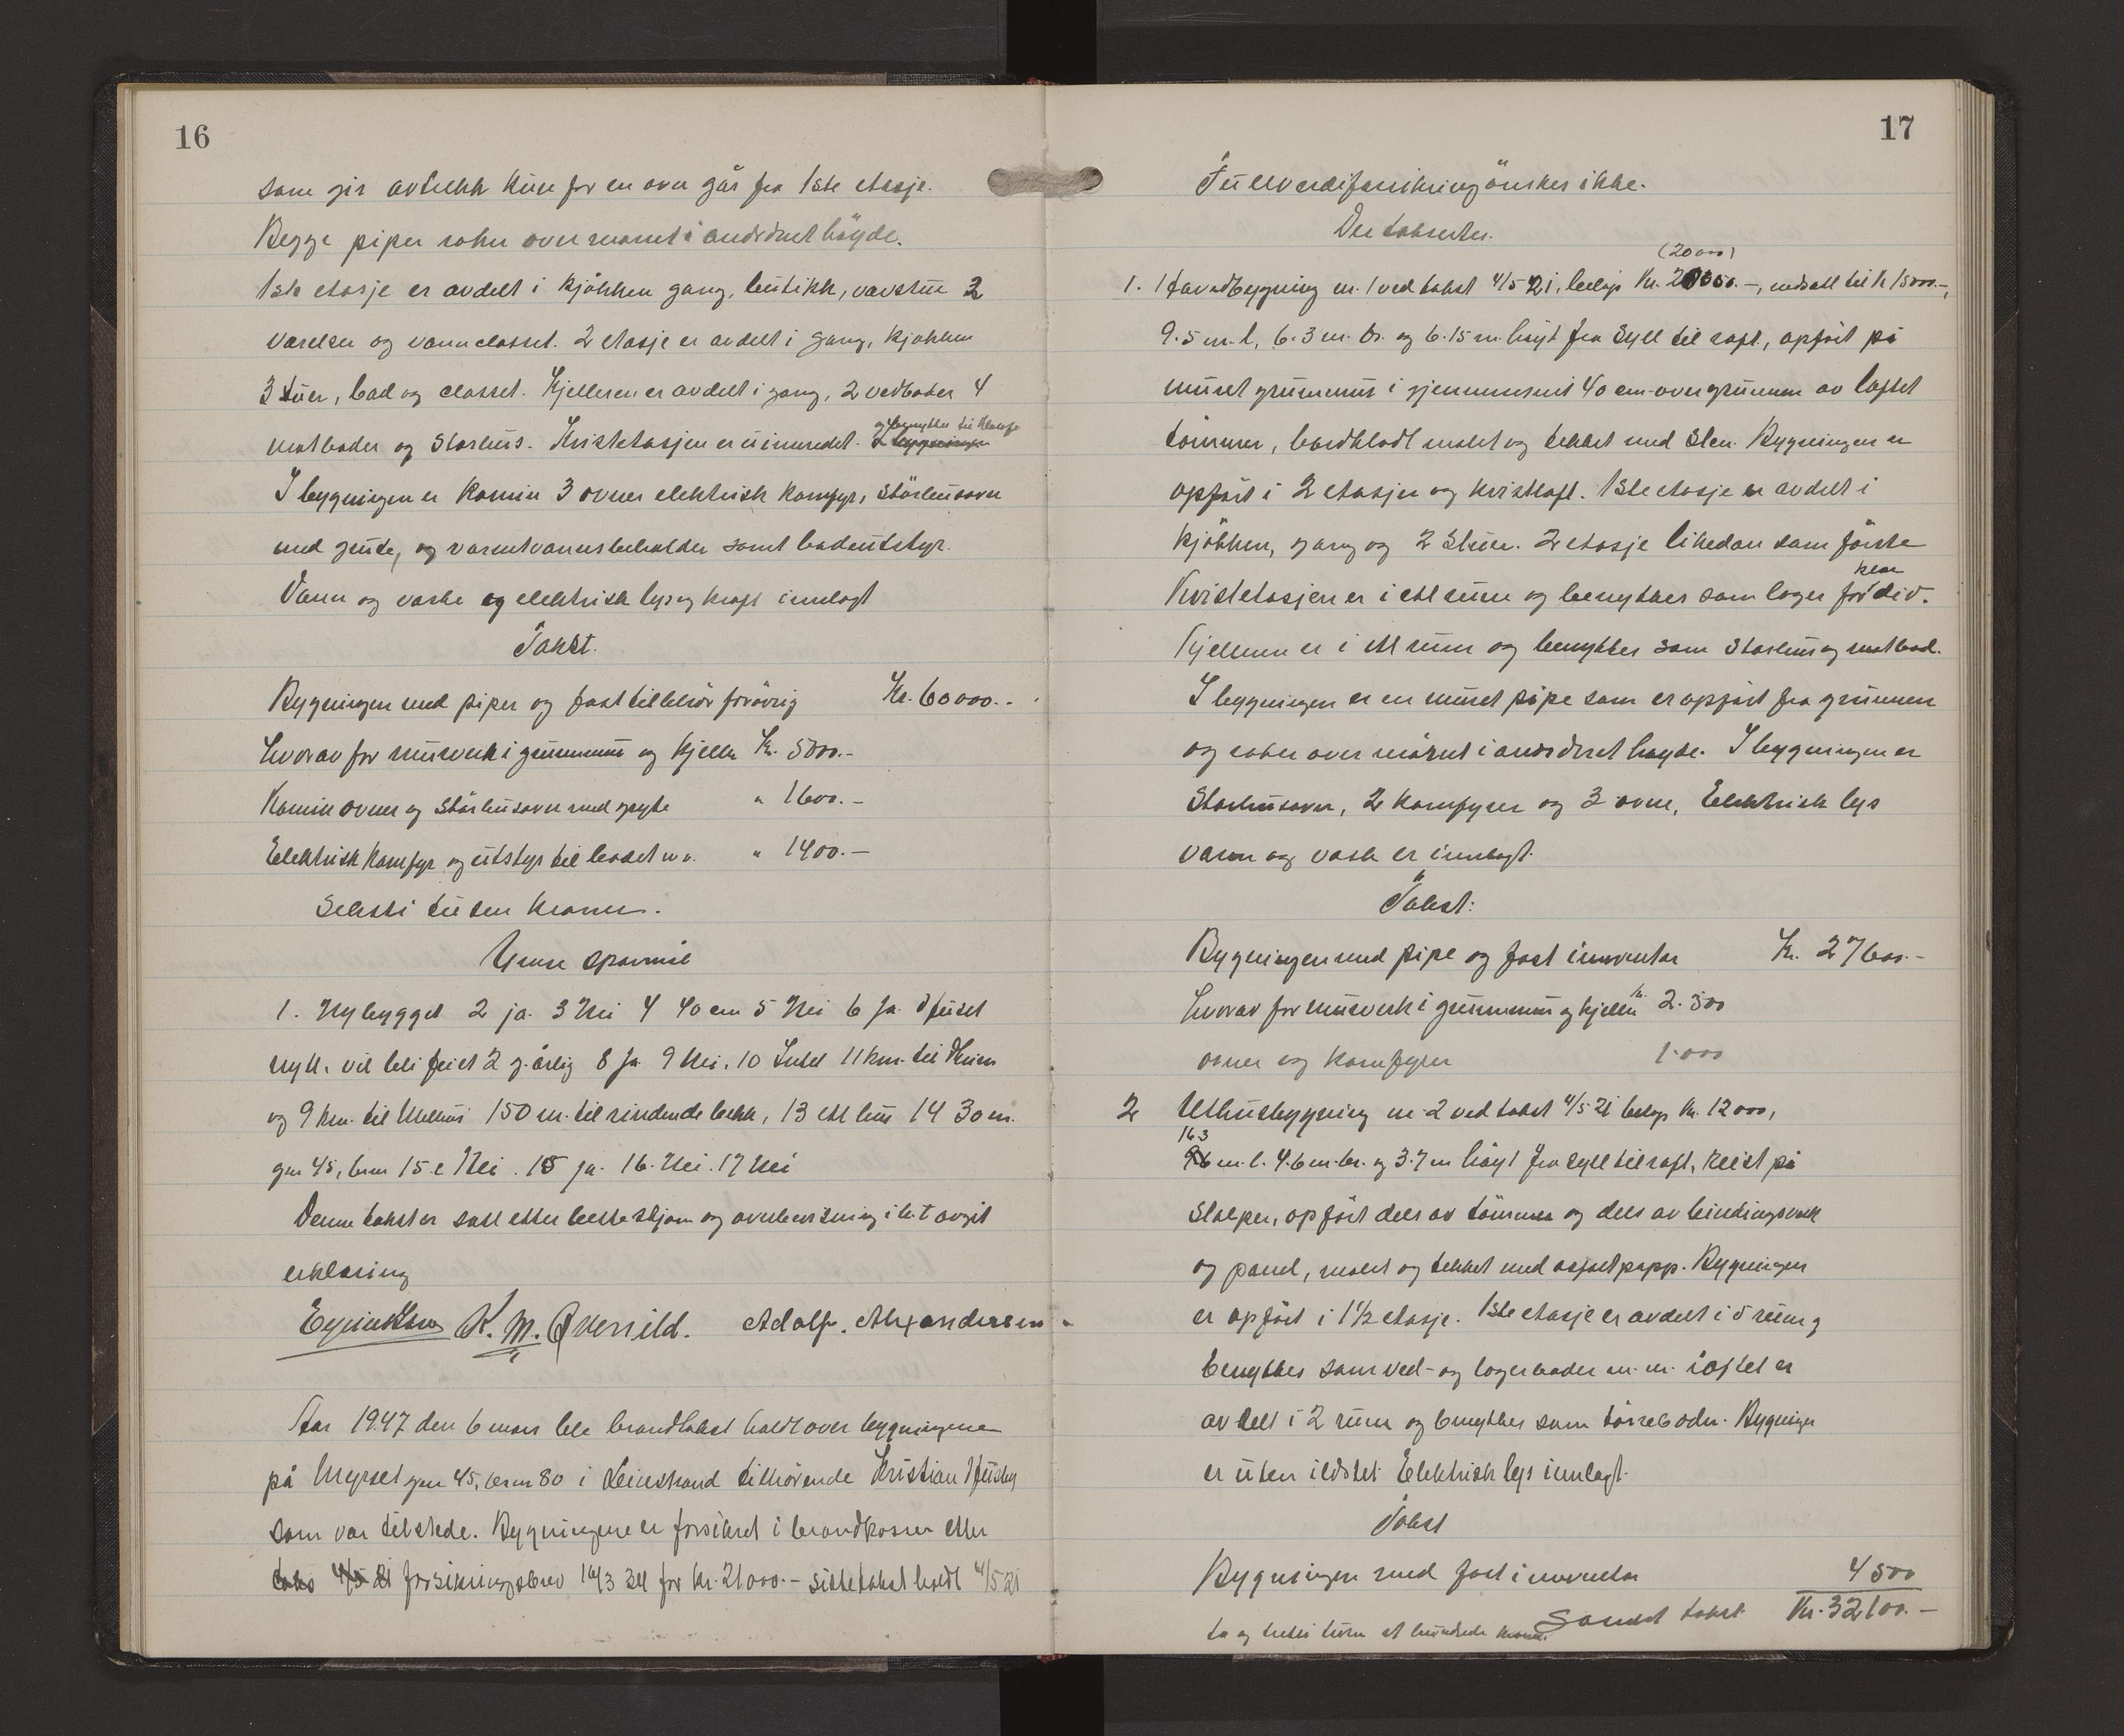 16
som gir avtrekk kun for en ovn går fra 1ste etasje.
Begge piper raker over mønet i anordnet høyde.
1ste etasje er avdelt i kjøkken gang, butikk, vavstue 2
værelser og vannclosset. 2 etasje er avdelt i gang, kjøkken
3 stuer, bad og closset. Kjelleren er avdelt i gang, 2 vedboder 4
matboder og storhus. Kvistetasjen er uinnredet.
og benyttes til
I bygningen er kamin 3 ovner elektrisk komfyr, störhusovn
med gryte, og varmtvannsbeholder samt badeutstyr.
Vann og vaske og elektrisk lys og kraft innlagt
Takst.
Bygningen med piper og fast tilbehör forövrig Kr. 60000.-
hvorav for murverk i grunnmur og kjeller Kr. 5000.-
Kamin ovner og störhusovn med gryte " 1600.-
Elektrisk komfyr og utstyr til badet m.v. " 1400.-
Seksti tusen kroner.
1. Nybygget 2 ja. 3 Nei 4 40 cm 5 Nei 6 Ja.
nytt, vil bli feiet 2 g. årlig 8 Ja 9 Nei. 10 Intet 11 km. til
og 9 km. til Melhus 150 m. til rindende bekk, 13 ett hus 14 30 m.
gnr 45, brnr 15.c Nei. 15 ja. 16. Nei. 17 Nei
Denne takst er satt etter beste skjønn og overbevisning i h.t. avgit
erklæring
K. M. Qvenild. Adolf. Alexandersen
Aar 1947 den 6 mars ble branntakst holdt over bygningene
på Myrset gnr 45, brnr 80 i Leinstrand tilhörende Kristian Huseby
som var tilstede. Bygningene er forsikret i brandkassen etter
takst 4/5 21 forsikringsbrev 16/3 32 for kr. 21000.- siste takst holdt 4/5 21
17
Fullverdiforsikring önskes ikke.
Der takseres.
(20000)
1. Havedbygning nr. 1 ved takst 4/5 21, belöp Kr. 20000.-, nedsatt til k 15000.-,
9.5 m. l, 6.3 m. br. og 6.15 m. høyt fra syll til raft, opfört på
muret grunnmur i gjennemsnit 40 cm over grunnen av laftet
tömmer, bordkledt malet og tekket med sten. Bygningen er
opfört i 2 etasjer og kvistloft. 1ste etasje er avdelt i
kjökken, gang og 2 stuer. 2 etasje likedan som förste
Kvistetasjen er i ett rum og benyttes som lager for div.
Kjelleren er i ett rum og benyttes som storhus og matbod.
I bygningen er en muret pipe som er opfört fra grunnen
og raker over mönet i anordnet høyde. I bygningen er
Storhusovn, 2 komfyrer og 3 ovner, Elektrisk lys
vann og vask er innlagt.
Takst:
Bygningen med pipe og fast inventar Kr. 27600.-
hvorav for murverk i grunnmur og kjeller kr. 2.500
ovner og komfyrer 1.000
2 Uthusbygning nr. 2 ved takst 4/5 21 belöp Kr. 12000,
16.3
m. l. 4.6 m. br. og 3.7 m høyt fra syll til raft, reist på
stolper, opfört dels av tömmer og dels av bindingsverk
og panel, malet og tekket med asfaltpapp. Bygningen
er opfört i 1 1/2 etasje. 1ste etasje er avdelt i 5 rum og
benyttes som ved- og lagerboder m. m. loftet er
avdelt i 2 rum og benyttes som törreboder. Bygningen
er uten ildsted. Elektrisk lys innlagt.
Takst
Bygningen med fast inventar 4500
Samlet takst Kr. 32100.-
to og tretti tusen et hundrede kroner.